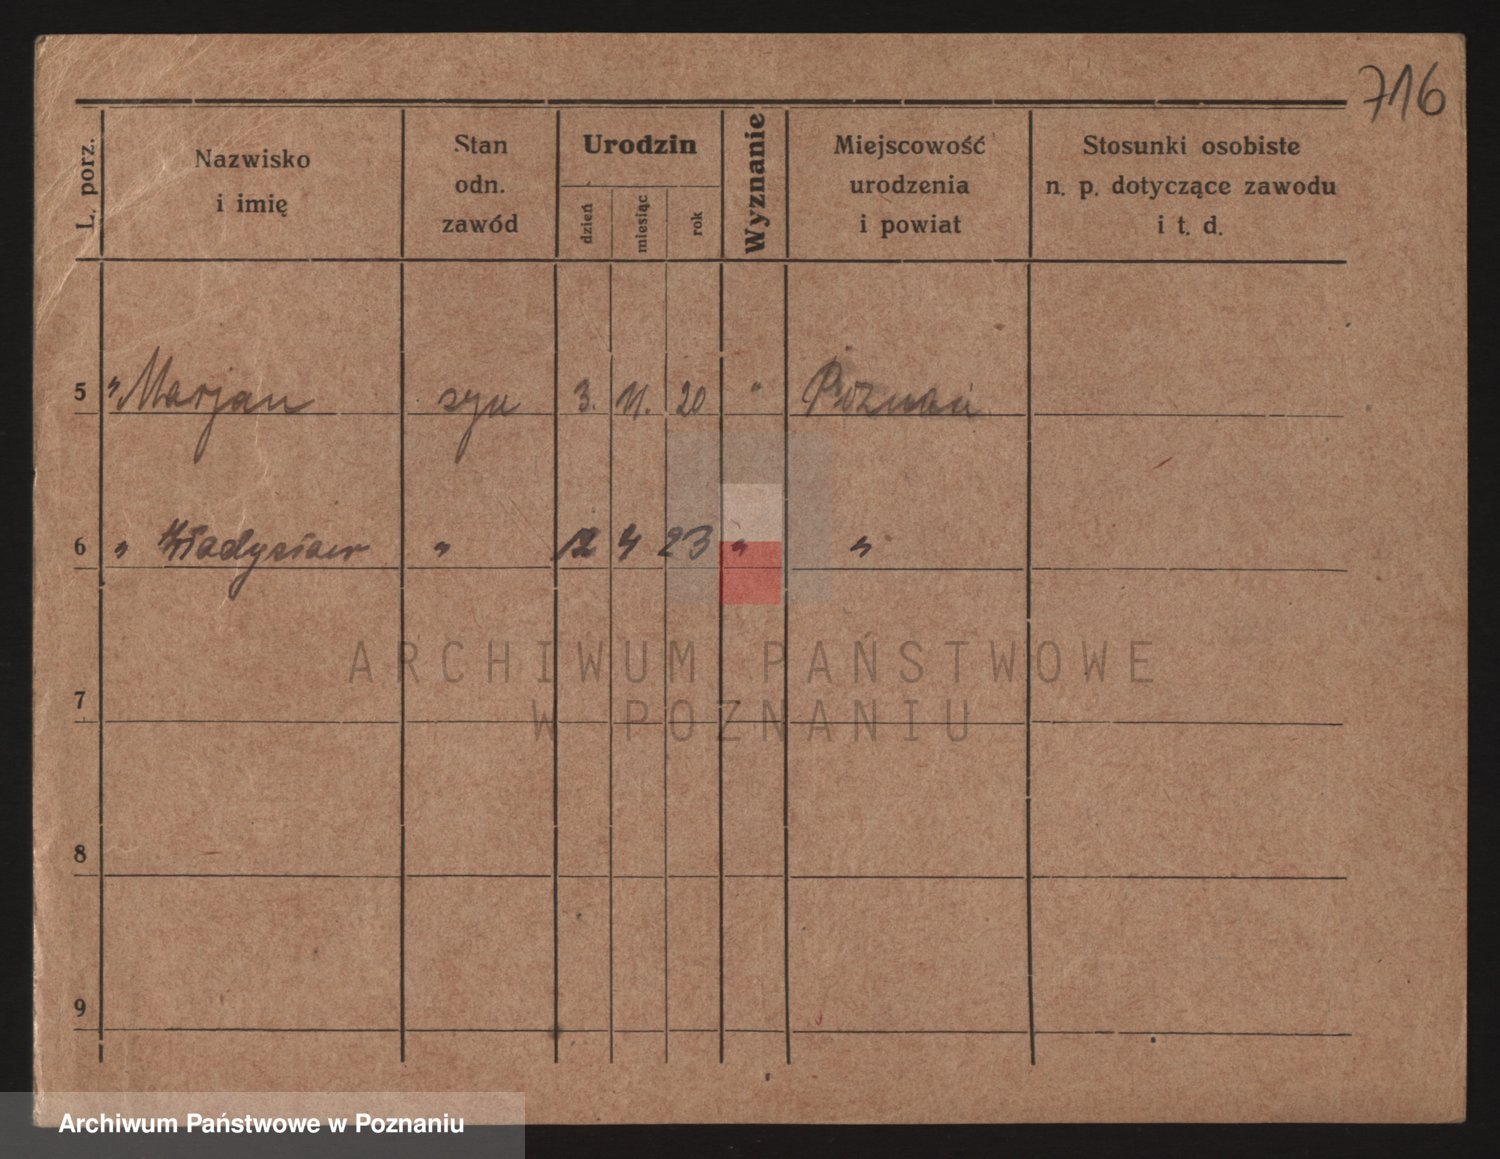 716
L. porz.
Nazwisko
i imię
Stan
odn.
zawód
Urodzin
dzień
miesiąc
rok
Wyznanie
Miejscowość
urodzenia
i powiat
Stosunki osobiste
n. p. dotyczące zawodu
i t. d.
5 " Marjan syn 3. 11. 20 " Poznań
6 " Władysław " 12 4 23 " "
ARCHIWUM PAŃSTWOWE
W POZNANIU
7
8
9
Archiwum Państwowe w Poznaniu